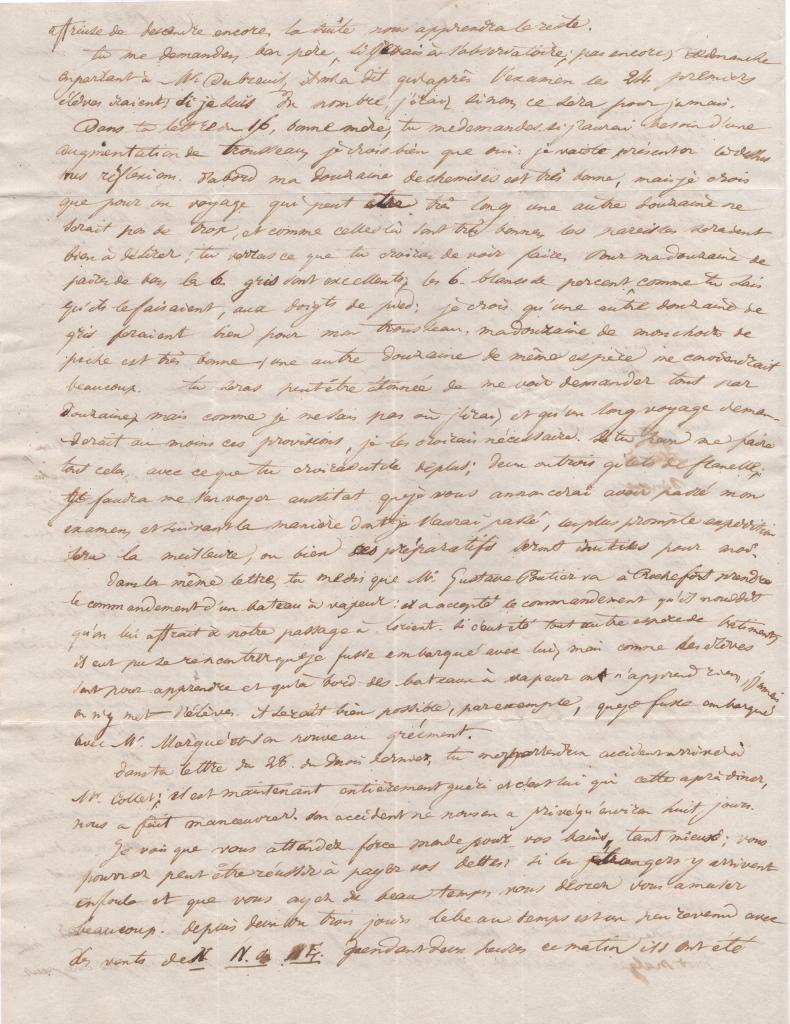 affreuse de descendre encore, la suite nous apprendra le reste.
tu me demandes, bon père, si je vais à l'observatoire; pas encore;
en parlant à Mr. Dubreuil, il m'a dit qu'après l'examen les 24 premiers
élèves iraient; si je suis du nombre, j'irai, sinon ce sera pour jamais.
Dans ta lettre du 16, bonne mère, tu me demandes si j'aurai besoin d'une
augmentation de trousseau, je crois bien que oui: je vais te présenter là dessus
mes réflexion. d'abord ma douzaine de chemises est très bonne, mais je crois
que pour un voyage qui peut être très long une autre douzaine ne
serait pas de trop, et comme celles là sont très bonnes, les pareilles seraient
bien à désirer; tu verras ce que tu croiras devoir faire. Pour ma douzaine de
paires de bas, les 6 gris sont excellents, les 6 blancs se percent, comme tu sais
qu'ils le faisaient, aux doigts de pied; je crois qu'une autre douzaine de
gris feraient bien pour mon trousseau. ma douzaine de mouchoirs de
poche est très bonne, une autre douzaine de même espèce me conviendrait
beaucoup. tu seras peut être étonnée de me voir demander tout par
douzaine, mais comme je ne sais pas où j'irai, et qu'un long voyage deman-
derait au moins ces provisions, je les croirais nécessaire. me faire
tout cela, avec ce que tu croiras utile de plus; deux ou trois gilets de flanelle,
il faudra me l'envoyer aussitôt que je vous annoncerai avoir passé mon
examen, et suivant la manière dont je l'aurai passé, la plus prompte expédition
sera la meilleure, ou bien ces préparatifs seront inutiles pour moi.
Dans la même lettre, tu me dis que Mr. Gustave Poutier va à Rochefort prendre
le commandement d'un bateau à vapeur: il a accepté le commandement qu'il nous dit
qu'on lui offrait à notre passage à Lorient. Si c'eut été tout autre espèce de bâtiments,
il eut pu se rencontrer que je fusse embarqué avec lui, mais comme des élèves
sont pour apprendre et qu'à bord des bateaux à vapeur on n'apprend rien, jamais
on n'y met d'élèves. il serait bien possible, par exemple, que je fusse embarqué
avec Mr. et son nouveau gréement.
Dans ta lettre du 28 du mois dernier, tu me parles d'un accident arrivé à
Mr. Collet; il est maintenant entièrement guéri et c'est lui qui cette après diner,
nous a fait manœuvrer. son accident ne nous en a privé qu'environ huit jours.
Je vois que vous attendez force monde pour vos bains, tant mieux; vous
pourrez peut être réussir à payer vos dettes: si les étrangers y arrivent
en foule et que vous ayez du beau temps vous devrez vous amuser
beaucoup. depuis deux ou trois jours le beau temps est un peu revenu avec
des vents de N. N. a N E. pendant deux heures ce matin ils ont été